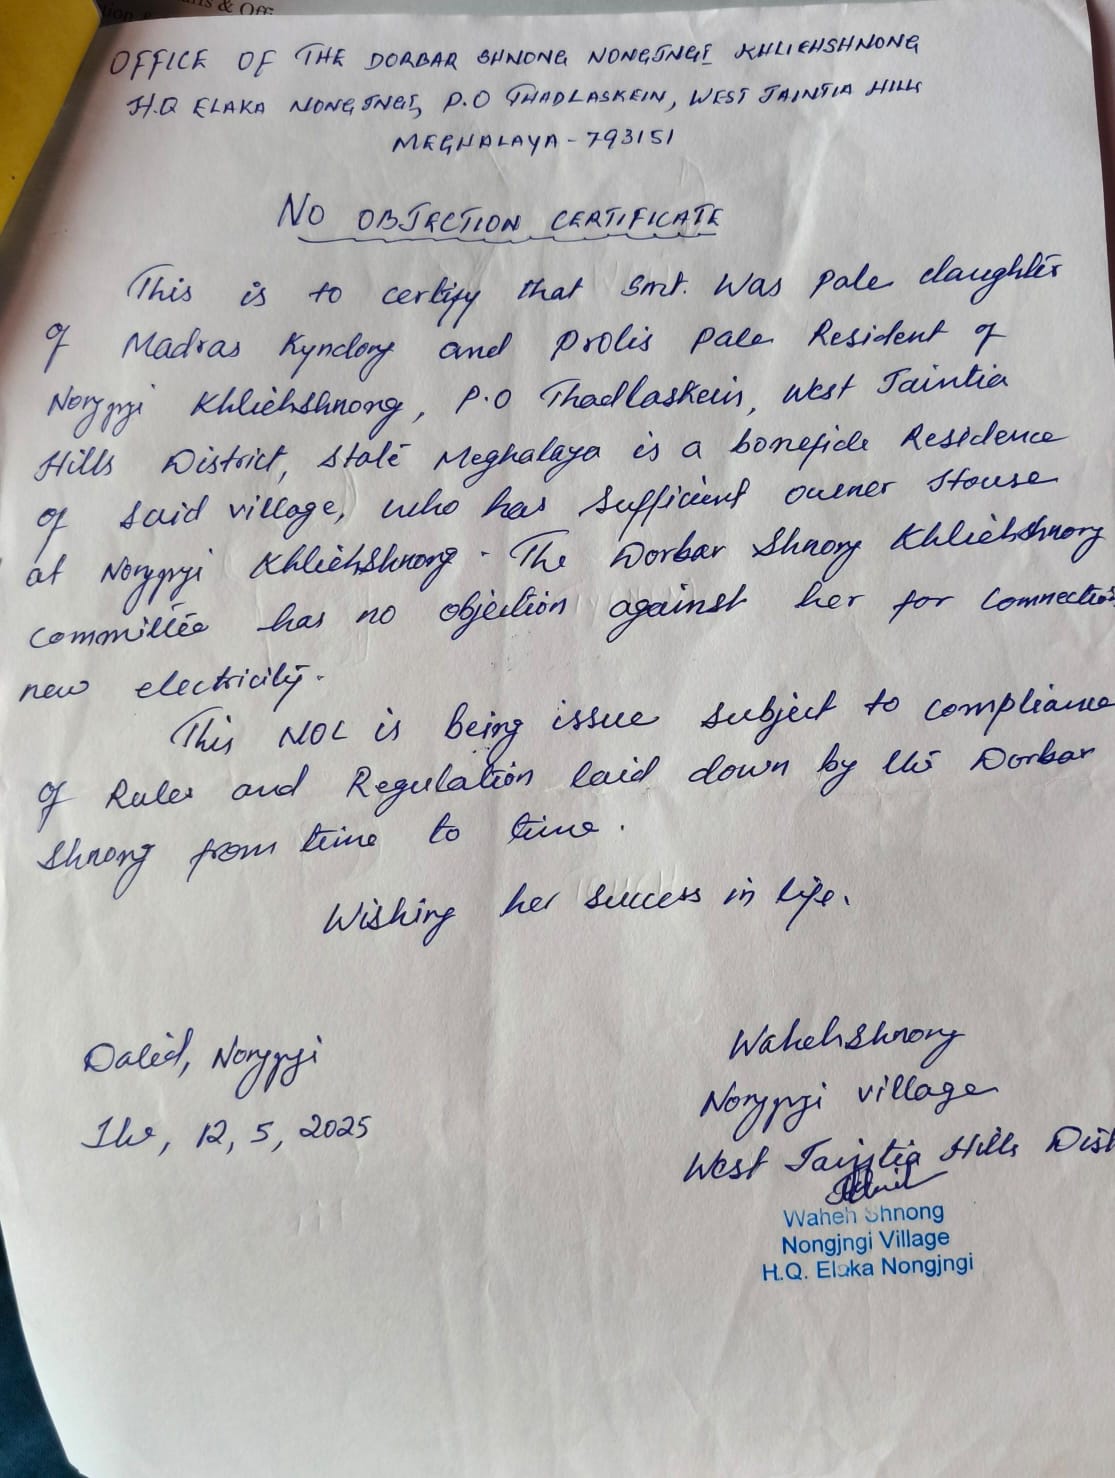 OFFICE OF THE DORBAR SHNONG NONGJNGI KHLIEHSHNONG
H.Q ELAKA NONGJNGI, P.O THADLASKEIN, WEST JAINTIA HILLS
MEGHALAYA - 793151
NO OBJECTION CERTIFICATE
This is to certify that Smt. Was Pale daughter
of Madras Kyndong and Prolis Pale Resident of
Nongjngi Khliehshnong, P.O Thadlaskein, West Jaintia
Hills District, State Meghalaya is a bonefide Residence
of said village, who has sufficient owner House
at Nongjngi Khliehshnong. The Dorbar Shnong Khliehshnong
committee has no objection against her for connection
new electricity.
This NOC is being issue subject to compliance
of Rules and Regulation laid down by the Dorbar
Shnong from time to time.
Wishing her success in life.
Dated, Nongjngi
The, 12, 5, 2025
Waheh Shnong
Nongjngi village
West Jaintia Hills Dist
Waheh Shnong
Nongjngi Village
H.Q. Elaka Nongjngi